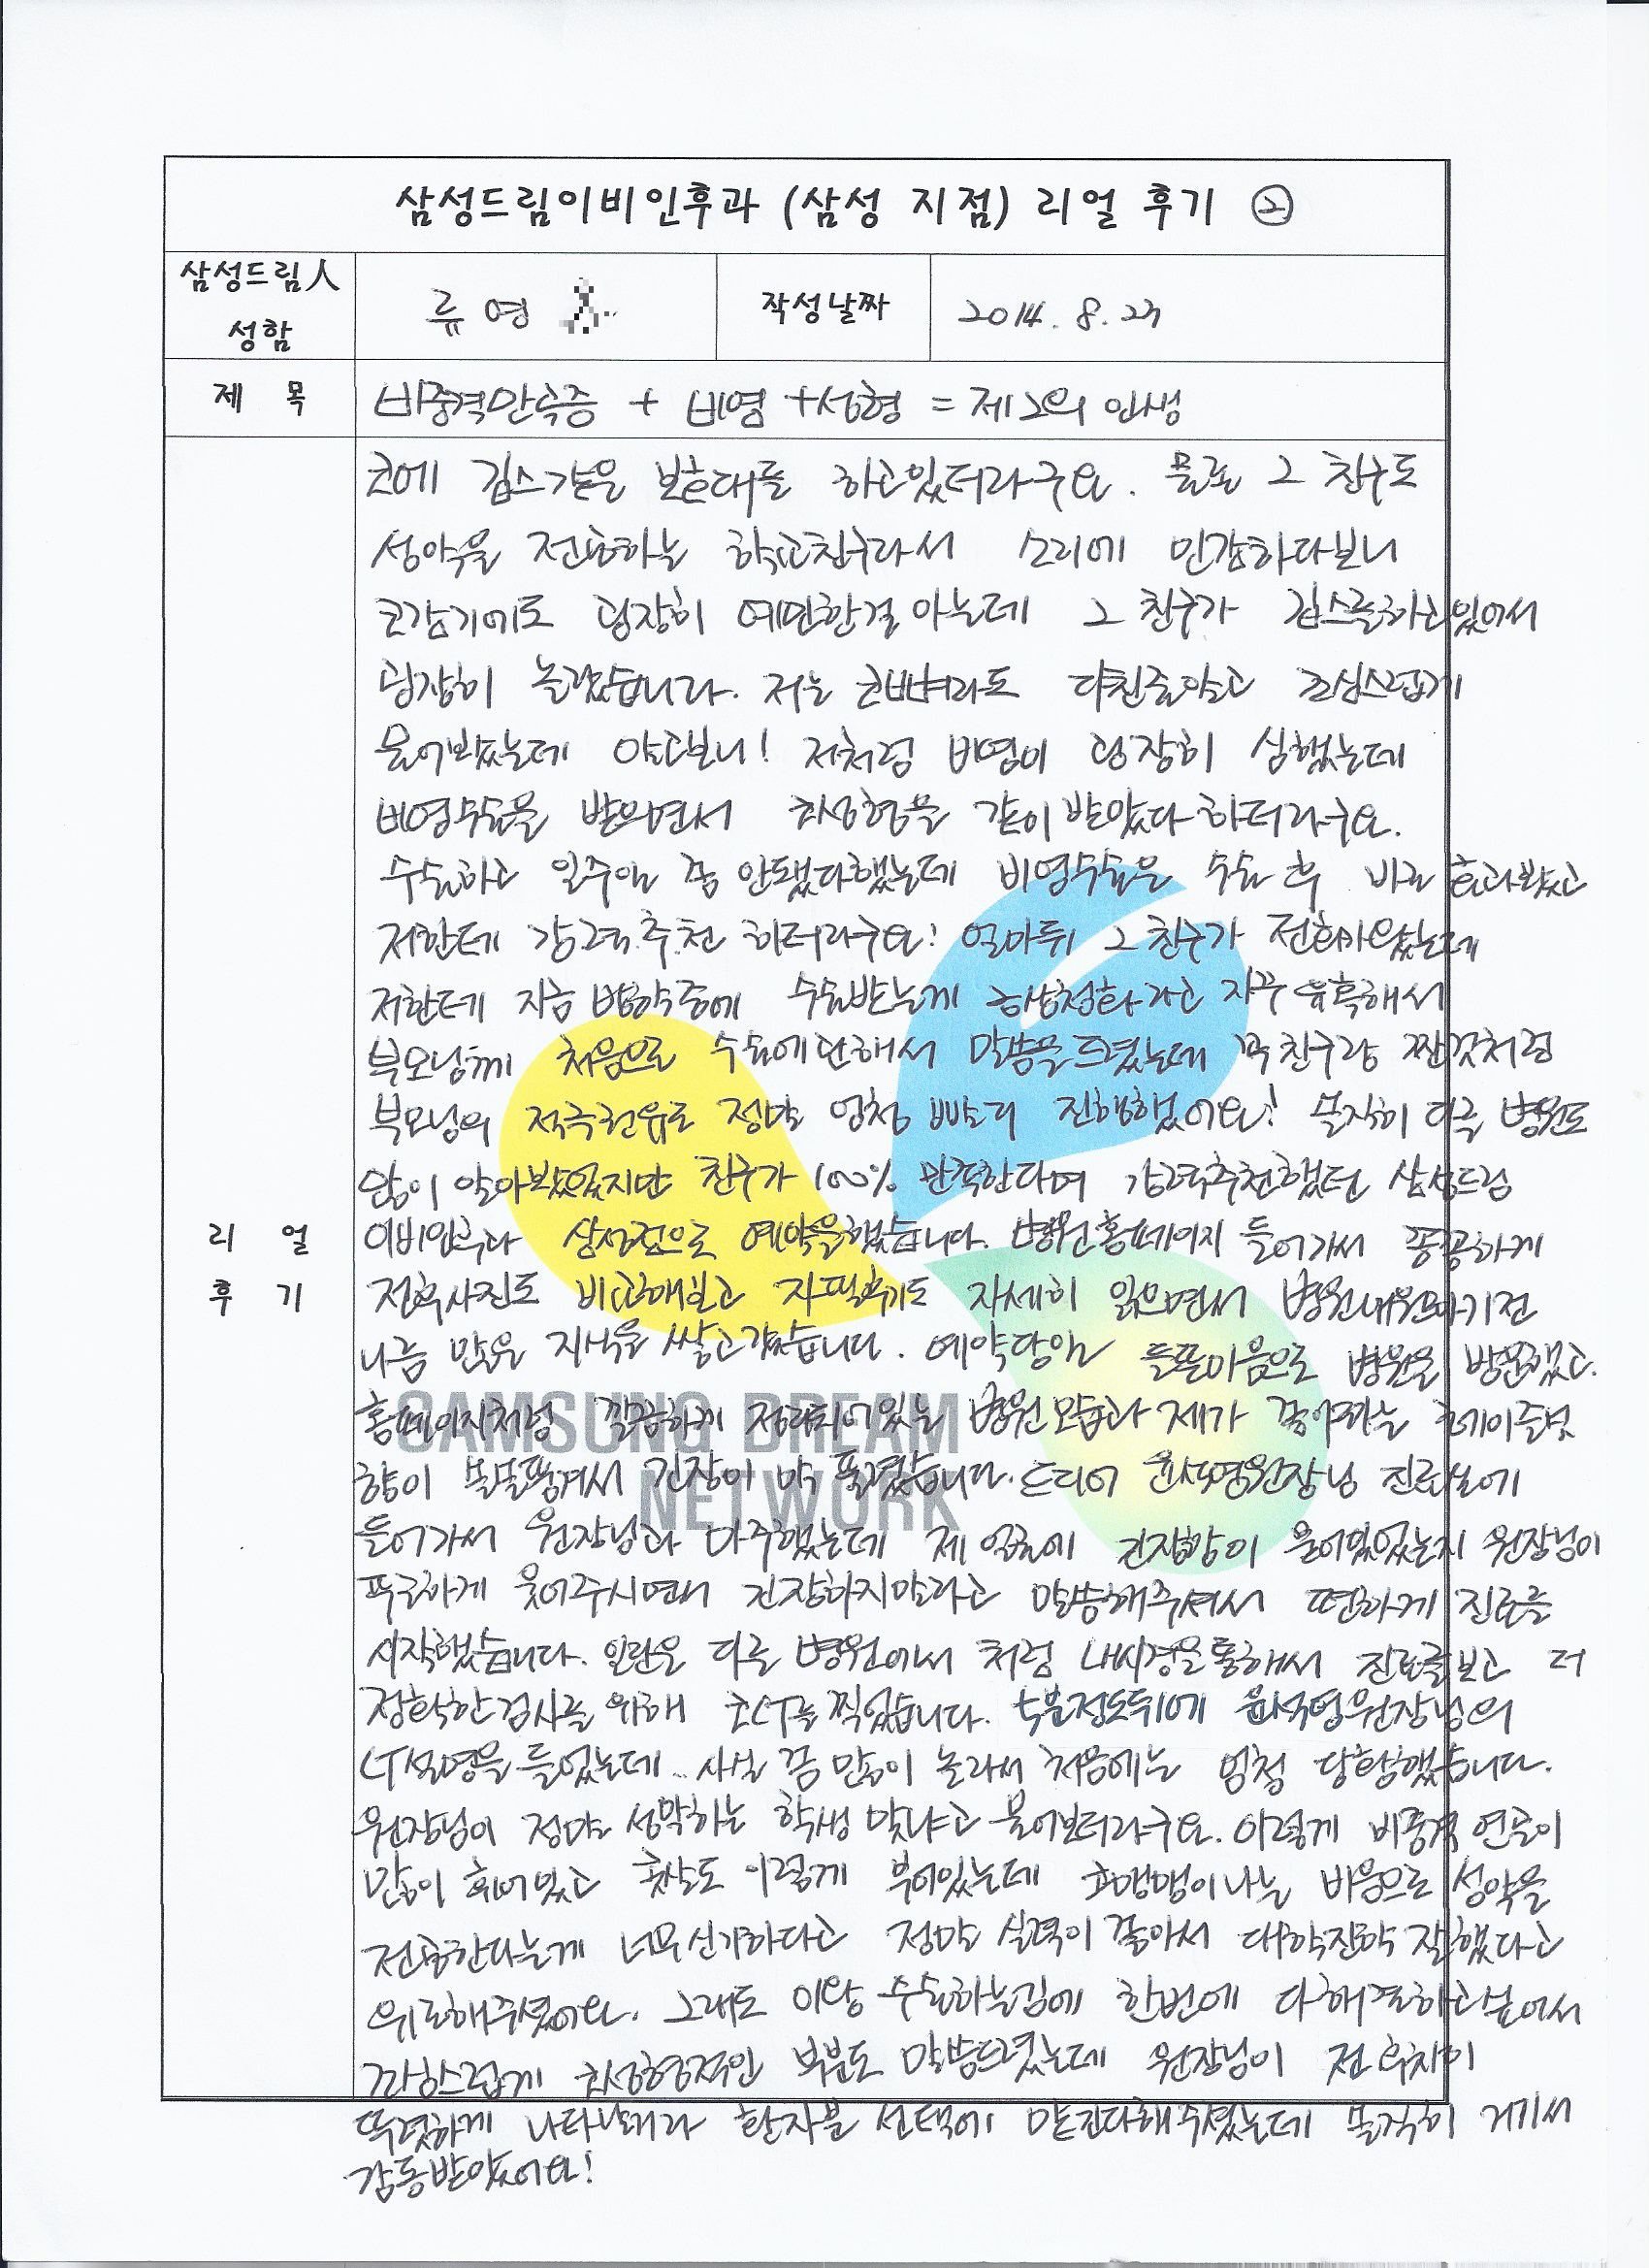 삼성드림이비인후과 (삼성 지점) 리얼 후기 ②
삼성드림人
성함
류영
작성날짜
2014. 8. 23
제 목
비중격만곡증 + 비염 + 성형 = 제2의 인생
리 얼
후 기
코에 깁스같은 보호대를 하고있더라구요. 물론 그 친구도
성악을 전공하는 학교친구라서 소리에 민감하다보니
코감기에도 굉장히 예민한걸 아는데 그 친구가 깁스를하고있어서
굉장히 놀랐습니다. 저는 코뼈라도 다친줄알고 조심스럽게
물어봤는데 알고보니! 저처럼 비염이 굉장히 심했는데
비염수술을 받으면서 코성형을 같이 받았다 하더라구요.
수술하고 일주일 쫌 안됐다했는데 비염수술은 수술 후 바로 효과봤고
저한테 강력추천 하더라구요! 얼마뒤 그 친구가 전화가왔는데
저한테 지금 방학중에 수술받는게 금상첨화라고 자꾸 유혹해서
부모님께 처음으로 수술에 관해서 말씀을드렸는데 꼭 친구랑 짠것처럼
부모님의 적극권유로 정말 엄청 빨리 진행했어요! 솔직히 다른 병원도
많이 알아봤었지만 친구가 100% 만족한다며 강력추천했던 삼성드림
이비인후과 삼성점으로 예약을했습니다. 병원홈페이지 들어가서 꼼꼼하게
전후사진도 비교해보고 자필후기도 자세히 읽으면서 병원내원하기전
나름 많은 지식을 쌓고갔습니다. 예약당일 들뜬마음으로 병원을 방문했고.
홈페이지처럼 깔끔하게 정리되어있는 병원모습과 제가 좋아하는 헤이즐넛
향이 솔솔풍겨서 긴장이 막 풀렸습니다. 드디어 윤석영원장님 진료실에
들어가서 원장님과 마주했는데 제 얼굴에 긴장함이 묻어있었는지 원장님이
푸근하게 웃어주시면서 긴장하지말라고 말씀해주셔서 편하게 진료를
시작했습니다. 일단은 다른 병원에서 처럼 내시경을통해서 진료를보고 더
정확한검사를 위해 코CT를 찍었습니다. 5분정도뒤에 윤석영원장님의
CT설명을 들었는데.. 사실 쫌 많이 놀라서 처음에는 엄청 당황했습니다.
원장님이 정말 성악하는 학생 맞냐고 물어보더라구요. 이렇게 비중격 연골이
많이 휘어있고 콧살도 이렇게 부어있는데 코맹맹이나는 비음으로 성악을
전공한다는게 너무신기하다고 정말 실력이 좋아서 대학진학 잘했다고
위로해주셨어요. 그래도 이왕 수술하는김에 한번에 다해결하고싶어서
코성형적인 부분도 말씀드렸는데 원장님이 전 후차이
뚜렷하게 나타날거라 환자분 선택에 맡긴다해주셨는데 솔직히 거기서
감동받았어요!
SAMSUNG DREAM
NETWORK